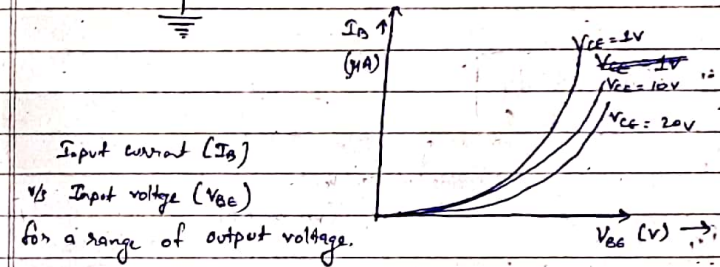 I_B ↑
(μA)
V_CE = 1V
V_CE = 1V
V_CE = 10V
V_CE = 20V
Input current (I_B)
v/s Input voltage (V_BE)
for a range of output voltage.
V_BE (V) →